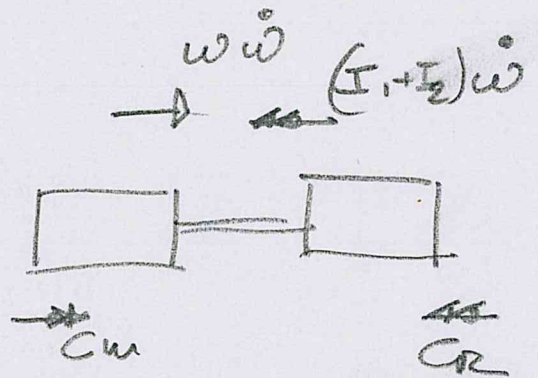 ω ω̇
(I₁+I₂)ω̇
Cm
CR